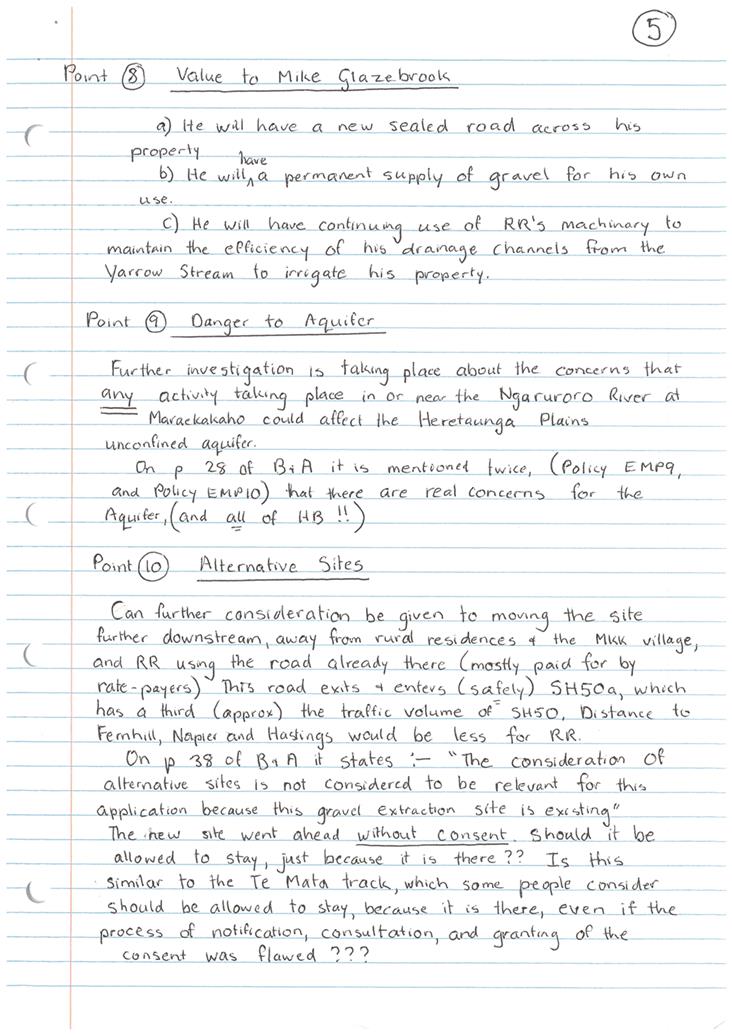 5
Point 8 Value to Mike Glazebrook
a) He will have a new sealed road across his
property
have
b) He will ^ a permanent supply of gravel for his own
use.
c) He will have continuing use of RR's machinary to
maintain the efficiency of his drainage channels from the
Yarrow Stream to irrigate his property.
Point 9 Danger to Aquifer
Further investigation is taking place about the concerns that
any activity taking place in or near the Ngaruroro River at
Maraekakaho could affect the Heretaunga Plains
unconfined aquifer.
On p 28 of B&A it is mentioned twice, (Policy EMP9,
and Policy EMP10) that there are real concerns for the
Aquifer, (and all of HB !!)
Point 10 Alternative Sites
Can further consideration be given to moving the site
further downstream, away from rural residences & the MKK village,
and RR using the road already there (mostly paid for by
rate-payers) This road exits & enters (safely) SH50a, which
has a third (approx) the traffic volume of SH50. Distance to
Fernhill, Napier and Hastings would be less for RR.
On p 38 of B&A it states :- "The consideration of
alternative sites is not considered to be relevant for this
application because this gravel extraction site is existing"
The new site went ahead without consent. Should it be
allowed to stay, just because it is there ?? Is this
similar to the Te Mata track, which some people consider
should be allowed to stay, because it is there, even if the
process of notification, consultation, and granting of the
consent was flawed ???